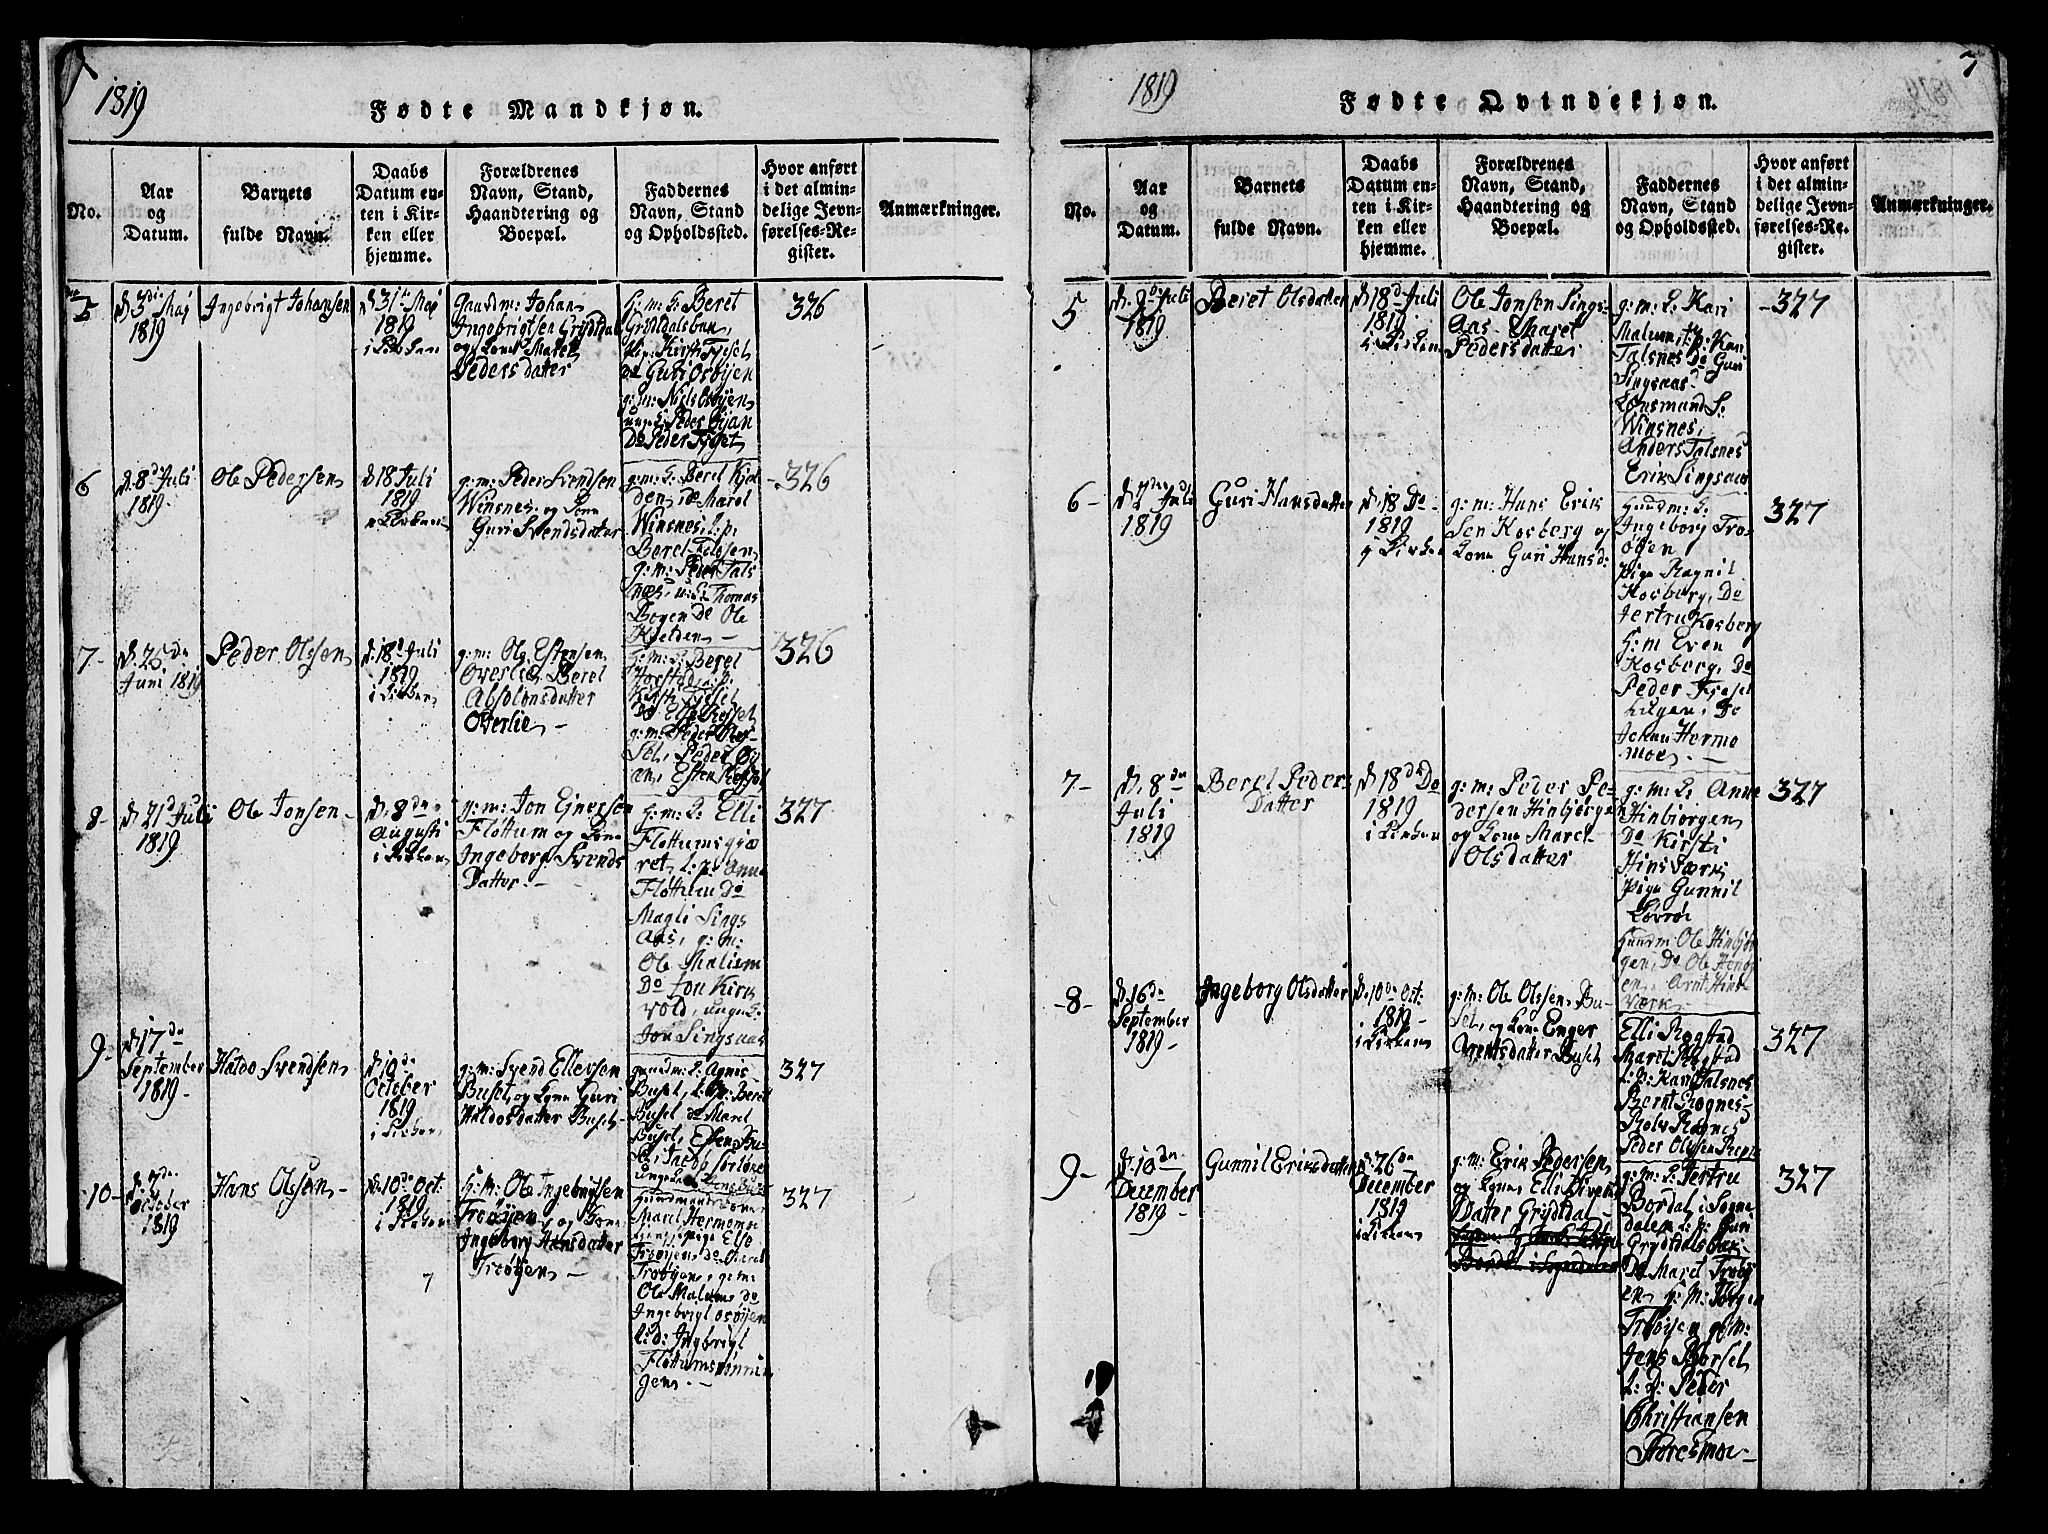 1819
Fødte Mandkjøn.
No.
Aar
og
Datum.
Barnets
fulde Navn.
Daabs
Datum en-
ten i Kir-
ken eller
hjemme.
Forældrenes
Navn, Stand,
Haandtering og
Boepæl.
Faddernes
Navn, Stand
og Opholdssted.
Hvor anført
i det almin-
delige Jevn-
førelses-Re-
gister.
Anmærkninger.
5
D. 3die Maj
1819
Ingebrigt Johansen
D 31te Maj
1819
i Kirken
Gaardm: Johan
Ingebrigtsen Grydtdal
og Kone Maret
Peders datter
G: m: K: Beret
Grytdalsbun,
Pige Kirsti Fysel
Do Guri Osøyen
g: m: Niels Osøyen
Peder Øyan
Do Peder Fyset
326
6
D. 8de Juli
1819
Ole Pedersen
D 18 Juli
1819
i Kirken
g: m: Peder Svendsen
Winsnes og Kone
Guri Svendsdatter
g: m: K: Beret Kjel
den, Do Marel
Winsnes, L: p:
Beret
g: m: Peder Tals
nes, Thomas
Bogen Do Ole
Kjelden
326
7
D. 25de
Juni 1819
Peder Olssen
D. 18d Juli
1819
i Kirken
g: m: Ole Estensen
Overlie, Beret
Absolonsdatter
Overlie
g: m: K: Beret
Peder Øy
en
326
8
D. 21d Juli
1819
Ole Jonsen
D. 8de
Augusti
i Kirken
g: m: Jon Ejnersen
Fløttum og Kone
Ingeborg Svends
Datter
G: m: K: Elli
Fløttumsgjæ
ret, L: p: Anne
Fløttum Do
Magli Sings
Aas, g: m:
Ole Maliem
Do Jon Kirk
vold, ungk:
Jon Singsaas
327
9
D 17de
September
1819
Haldo Svendsen
D 10de
October
1819
i Kirken
g: m: Svend Ellersen
Buset, og Kone Guri
Haldosdatter Buset
gaardm: K: Agnis
Buset, Beret
Buset do Maret
Buset, Esten Bu-
set, Jacob
327
10
October
1819
Hans Olssen
D. 10de Oct.
1819
i Kirken
G: M: Ole Ingebrigtsen
Trøøyen, og Kone
Ingeborg Hansdatter
Trøøyen
Maret Hermomoe
pige Else
Trøøyen, Do
Trøøyen, g: m:
Ole Malum do
Ingebrigt Osøyen
L: d: Ingebrigt
Fløttumsmønnin
gen
327
7
1819
Fødte Qvindekjøn.
7
No.
Aar
og
Datum.
Barnets
fulde Navn.
Daabs
Datum en-
ten i Kir-
ken eller
hjemme.
Forældrenes
Navn, Stand,
Haandtering og
Boepæl.
Faddernes
Navn, Stand
og Opholdssted.
Hvor anført
i det almin-
delige Jevn-
førelses-Re-
gister.
Anmærkninger.
5
Juli
1819
Beret Olsdatter
D 18d Juli
1819
i Kirken
Ole Jonsen Sings-
Aas Maret
Pedersdatter
g: m: K: Kari
Malum p: Kari
Talsnes Do Guri
Singsaas
Lensmand S:
Winsnes,
Anders Talsnes
Erik Singsaas
327
6
Juli
1819
Guri Hansdatter
D. 18 Do
1819
i Kirken
g: m: Hans Erik
sen Kosberg og
Kone Guri Hansd:
Gaardm: K:
Ingeborg Trø-
øyen
Pige Ragnil
Kosberg, Do
Jertru Kosberg
G: m Even
Kosberg, Do
Peder
Do
Johan Hermo
moe
327
7
D. 8de
Juli
1819
Beret Peders
Datter
D 18de Do
1819
i Kirken
g: m: Peder Pe-
dersen Hinbjørgen
og Kone Maret
Olsdatter
g: m: K: Anne
Hinbjørgen
Do Kirsti
Hinsværk
Pige Gunnil
Løvrøe
Gaardm Ole Hinbjør
gen, Do Ole
Arnt Hins
værk
327
8
D. 16de
September
1819
Ingeborg Olsdatter
D. 10de Oct:
1819
i Kirken
g: m: Ole Olssen Bu-
set, og Kone Enger
Arentsdatter Buset
Elli Rogstad
Maret Rogstad
L: P: Kari Talsnes
Bernt Rognes
Rolv Rognes
Peder Olssen
327
9
D. 10de
December
1819
Gunnil Eriksdatter
D. 26de
December
1819
i Kirken
g: m: Erik Pedersen
og Kone Elli Siverts
Datter Grydtdal
g: m: K: Jertru
Bordal i Sogne
dalen L: p: Guri
Grydtdalsbak
Do Maret Trøøy
en g: M: Jørgen
Trøøyen g: m:
Jens Borset
L: D: Peder
Christiansen
Storesmoe
327